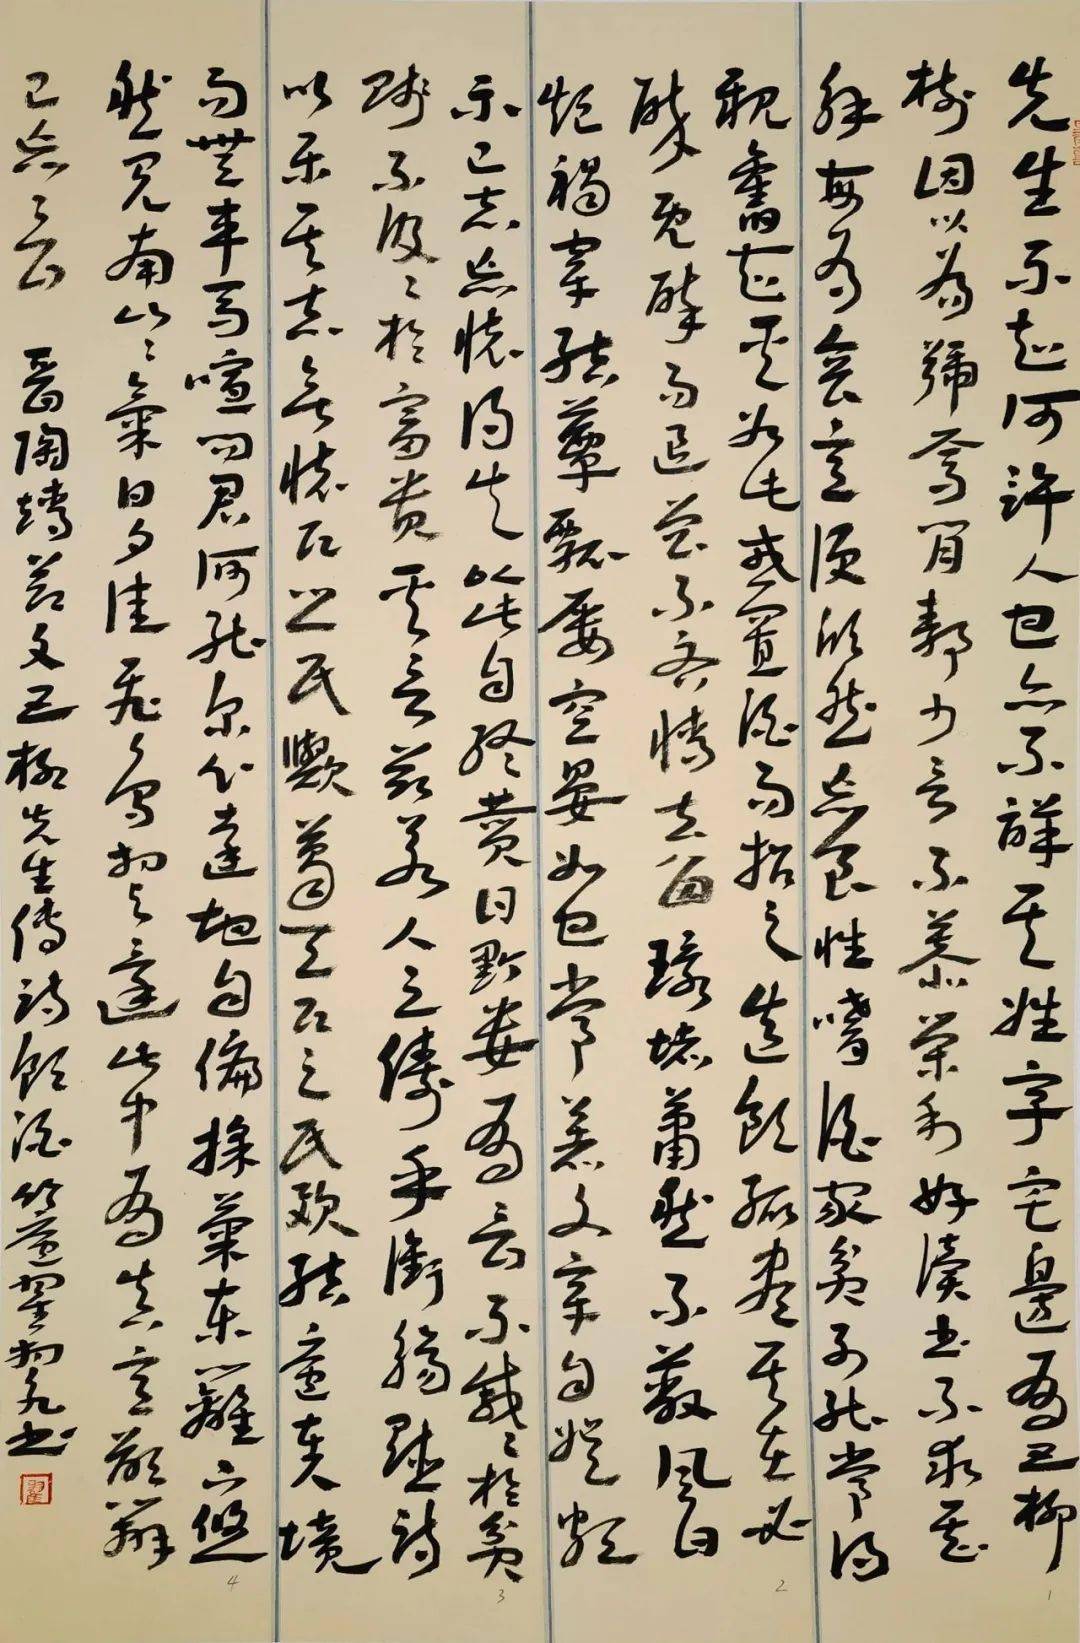 先生不知何許人也亦不詳其姓字宅邊有五柳
樹因以為號焉閒靜少言不慕榮利好讀書不求甚
解每有會意便欣然忘食性嗜酒家貧不能常得
親舊知其如此或置酒而招之造飲輒盡其在必
醉既醉而退曾不吝情去留環堵蕭然不蔽風日
短褐穿結簞瓢屢空晏如也常著文章自娛頗
示己志忘懷得失以此自終贊曰黔婁有言不戚〻於貧
賤不汲〻於富貴其言茲若人之儔乎銜觴賦詩
以樂其志無懷氏之民歟葛天氏之民歟結廬在人境
而無車馬喧問君何能爾心遠地自偏採菊東籬下悠
然見南山〻氣日夕佳飛鳥相與還此中有真意欲辯
已忘言 晉陶靖節文五柳先生傳詩飲酒 翟書
翟
1
2
3
4